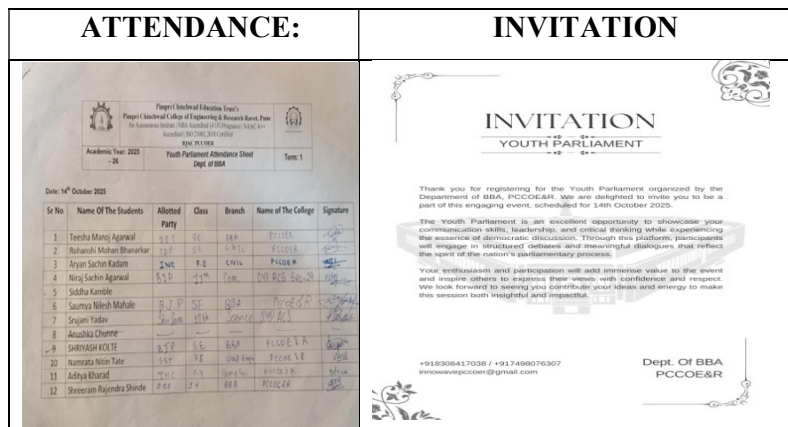 ATTENDANCE:
INVITATION
Pimpri Chinchwad Education Trust's
Pimpri Chinchwad College of Engineering & Research Ravet, Pune
IQAC PCCOER
Academic Year: 2025 – 26
Youth Parliament Attendance Sheet
Dept. of BBA
Term: 1
Date: 14th October 2025
Sr No Name Of The Students Allotted Party Class Branch Name of The College Signature
1 Teesha Manoj Agarwal SE BBA PCCOER
2 Rohanshi Mohan Bhanarkar TDP SE PCCOER
3 Aryan Sachin Kadam INC F.E CIVIL PCCOER
4 Niraj Sachin Agarwal BJP Com.
5 Siddha Kamble
6 Saumya Nilesh Mahale B.J.P SE BBA PCCOE&R
7 Srujani Yadav Science
8 Anushka Chunne
9 SHRIYASH KOLTE BJP S.E BBA PCCOE&R
10 Namrata Nitin Tate PCCOE&R
11 Aditya Kharad INC
12 Shreeram Rajendra Shinde BBA PCCOE&R
INVITATION
YOUTH PARLIAMENT
Thank you for registering for the Youth Parliament organized by the
Department of BBA, PCCOE&R. We are delighted to invite you to be a
part of this engaging event, scheduled for 14th October 2025.
The Youth Parliament is an excellent opportunity to showcase your
communication skills, leadership, and critical thinking while experiencing
the essence of democratic discussion. Through this platform, participants
will engage in structured debates and meaningful dialogues that reflect
the spirit of the nation's parliamentary process.
Your enthusiasm and participation will add immense value to the event
and inspire others to express their views with confidence and respect.
We look forward to seeing you contribute your ideas and energy to make
this session both insightful and impactful.
+918308417038 / +917498076307
innowavepccoer@gmail.com
Dept. Of BBA
PCCOE&R